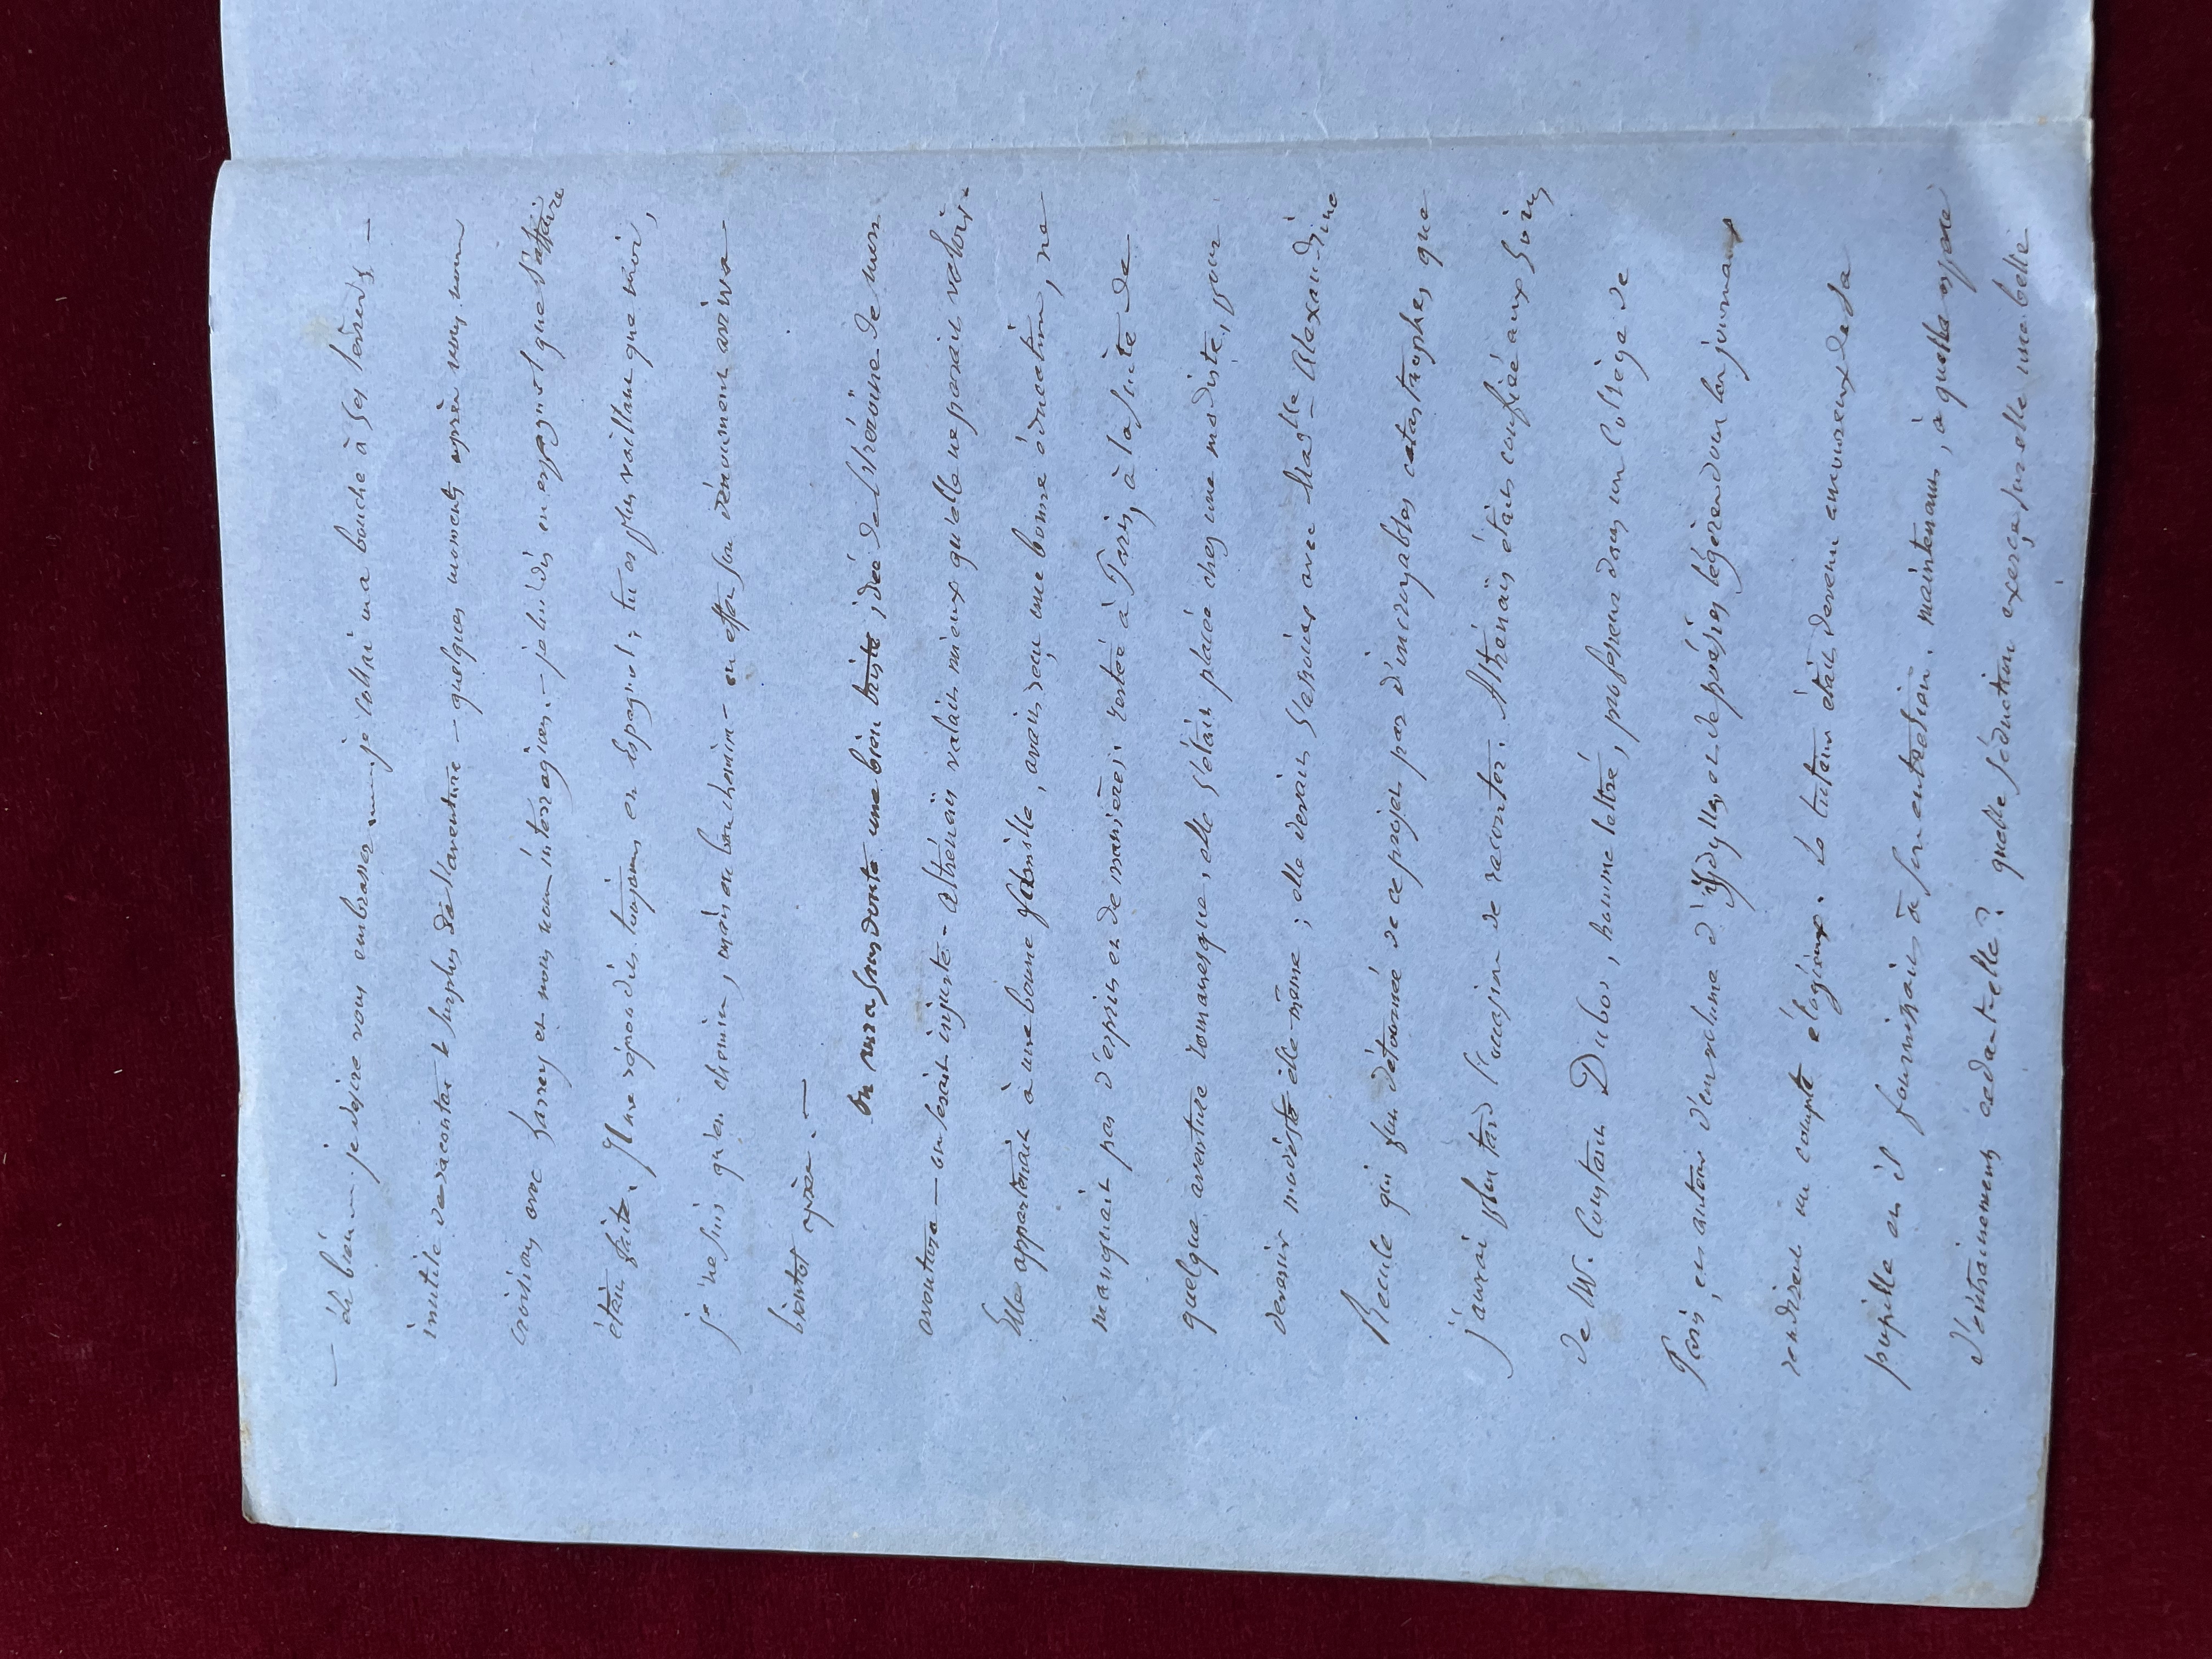 — éh bien — je desire vous embrasser — je collai ma bouche à ses levres —
inutile de raconter le surplus de l'aventure — quelques moments après nous nous
croisions avec Larrey et nous nous interrogions. — je lui dis en espagnol que l'affaire
était faite. Il me répondit toujours en espagnol; tu es plus vaillant que moi,
je ne suis qu'en chemin, mais en bon chemin — en effet son dénouement arriva
bientot après. —
on aura sans doute une bien triste idée de l'héroïne de mon
aventure — on serait injuste — Athénaïs valait mieux qu'elle ne parait valoir.
Elle appartenait à une bonne famille, avait reçu une bonne éducation, ne
manquait pas d'esprit et de manières. restée à Paris, à la suite de
quelque aventure romanesque, elle s'était placée chez une modiste, pour
devenir modiste elle-même; elle devait s'associer avec Madlle Alexandrine
Recule qui fut détournée de ce projet par d'incroyables catastrophes que
j'aurai plus tard l'occasion de raconter. Athénaïs était confiée aux soins
de M. Constant Dubos, homme lettré, professeur dans un collège de
Paris, et auteur d'un volume d'idylles et de poésies légères dont les journaux
rendirent un compte élogieux. Le tuteur était devenu amoureux de sa
pupille et il fournissait à son entretien. maintenant, à quelle espèce
d'entrainements céda-t-elle? quelle séduction exerça sur elle une belle